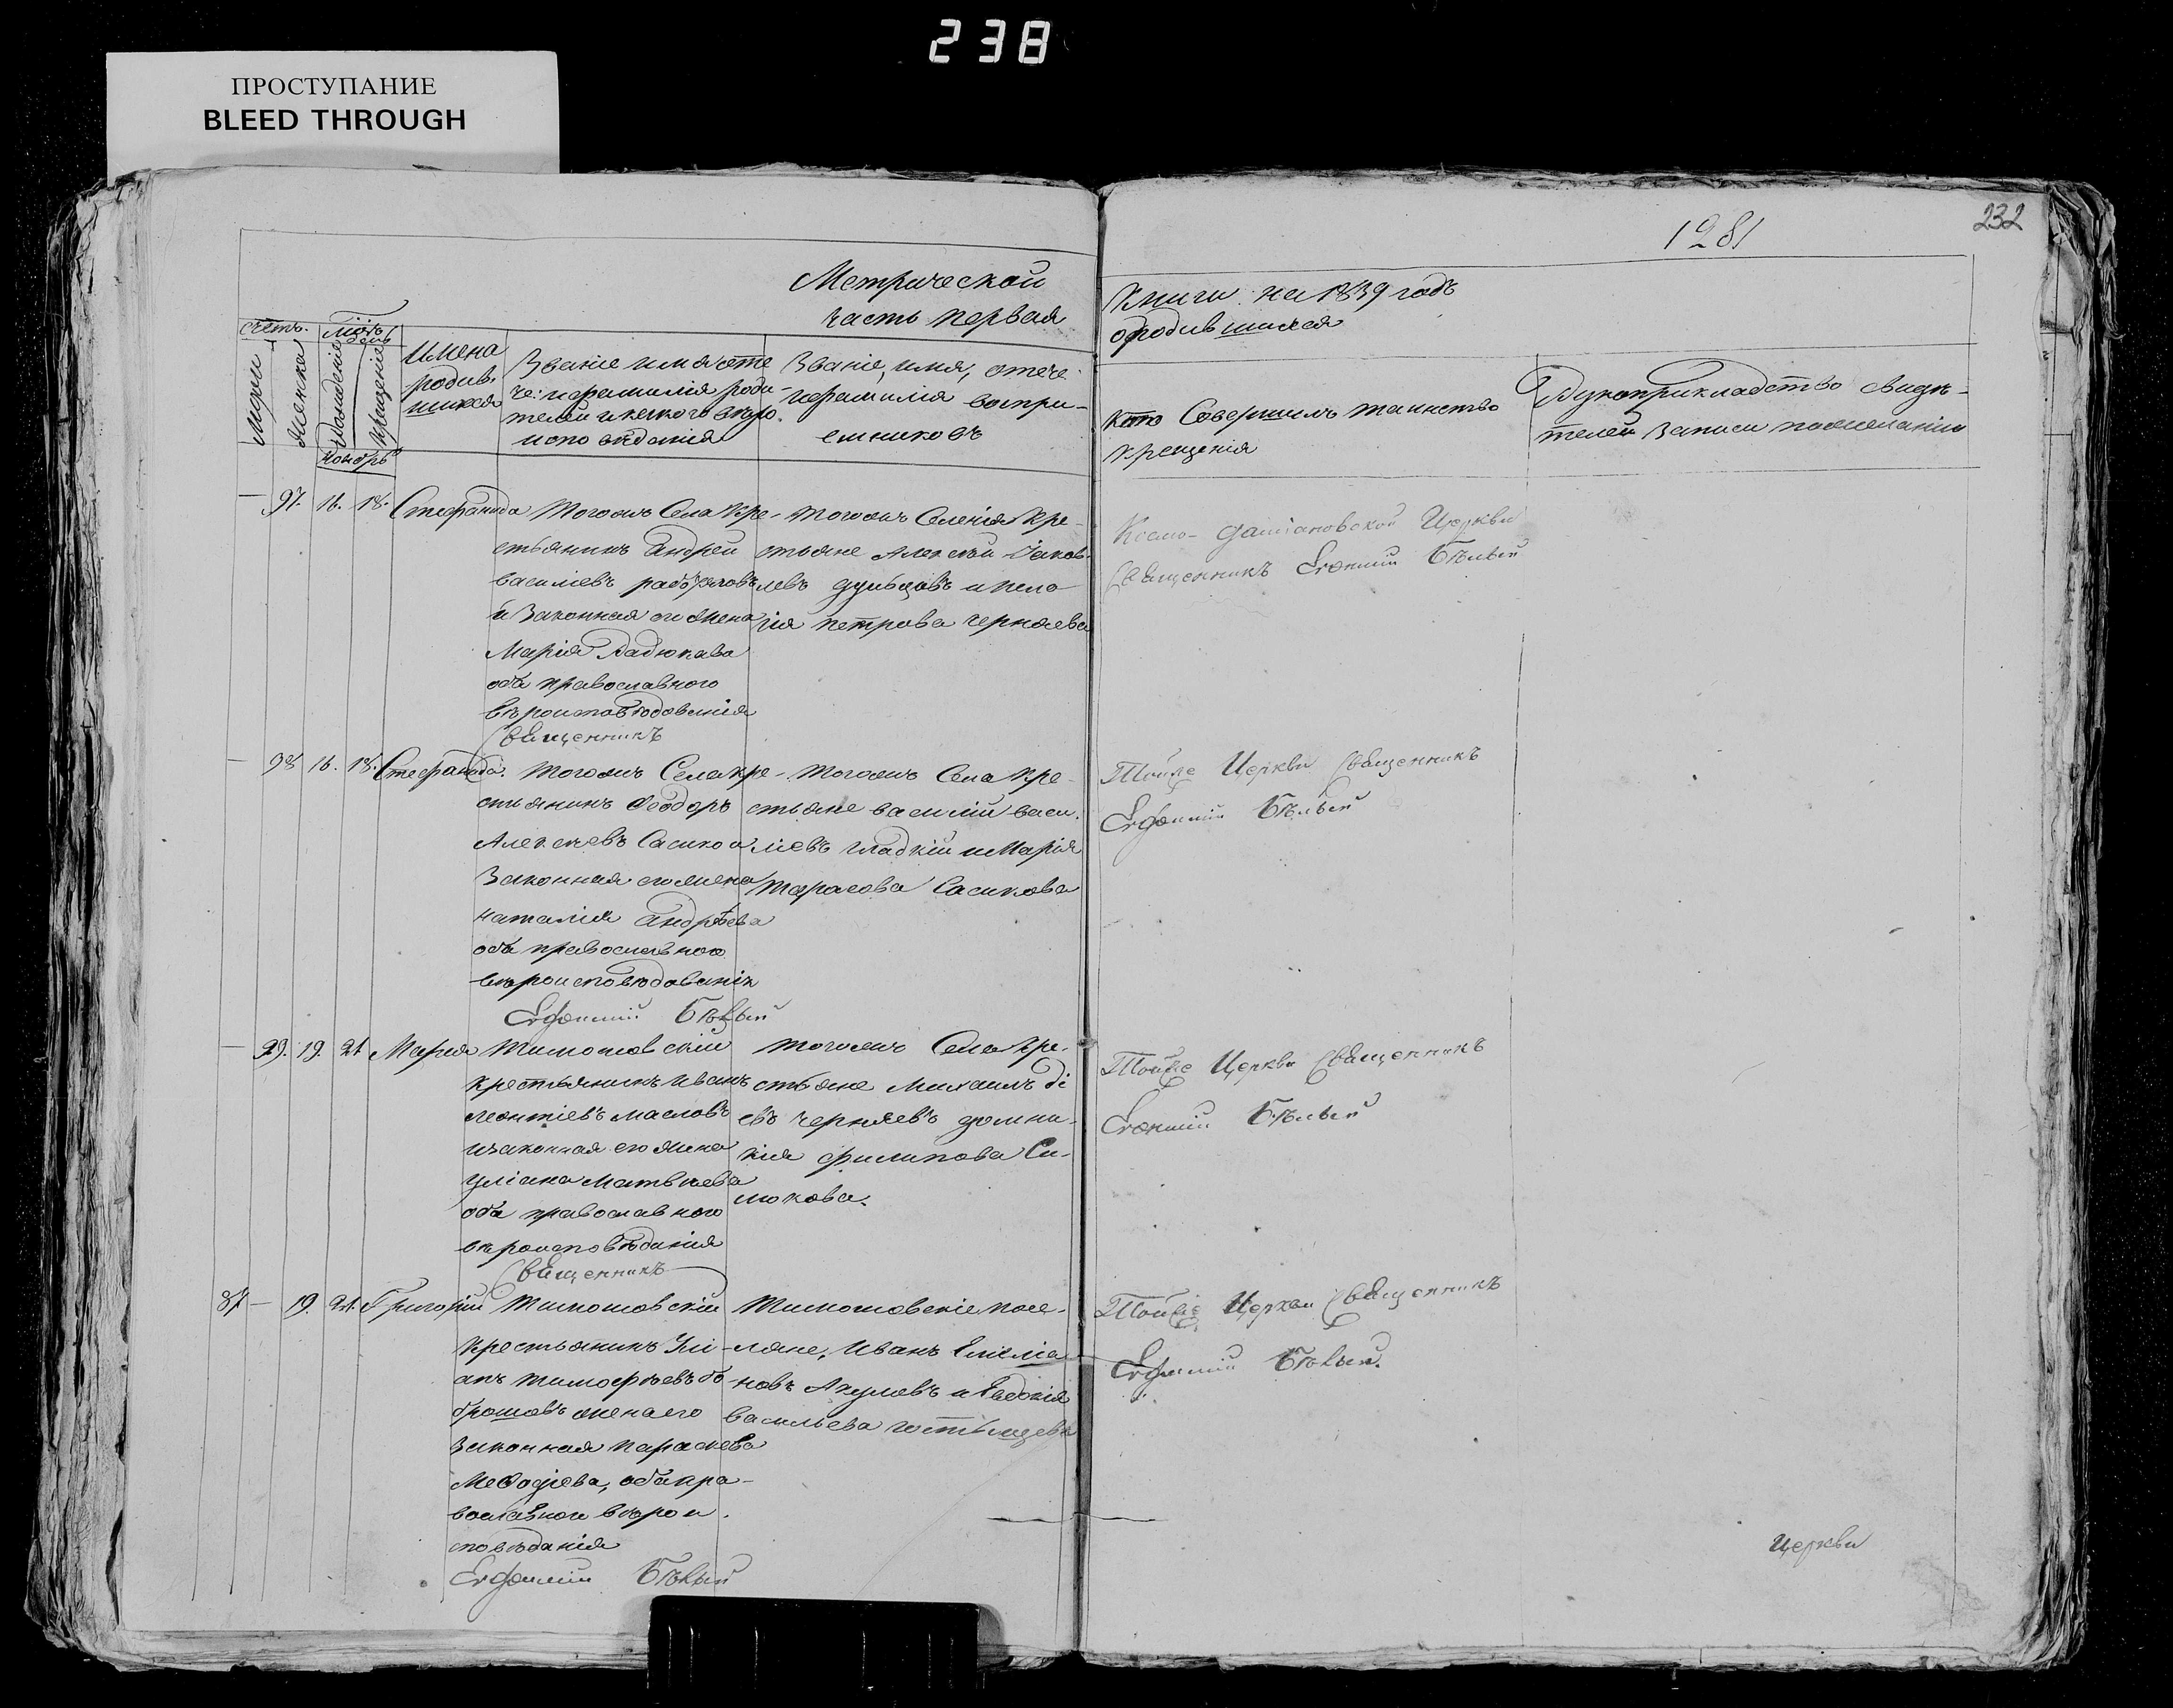 238
ПРОСТУПАНИЕ
BLEED THROUGH
232
1281
Метрической
часть первая
Книги на 1839 годъ
о родившихся
счетъ.
Мужеска
Женска
день
Рожденіе
Крещеніе
Ноябрь
Имена
родив.
шихся
Званіе имя оте
че: и фамилія роди-
телей и какого вѣро.
исповѣданія
Званіе, имя, отече.
и фамилія воспри-
емниковъ
Кто Совершилъ таинство
Крещенія
Рукоприкладство свидѣ-
телей записи по желанію
— 97. 16. 18. Стефанида
Тогожъ Села Кре-
стьянинъ Андрей
Василіевъ
и Законная его жена
Марія
оба православного
Священникъ
Тогожъ Селенія Кре-
стьяне Алексѣй Іаков-
левъ и Пела-
гія Петрова Черняева
Космо-Даміановской Церкви
Священникъ Евфимій Бѣлый
— 98 16. 18. Стефанида.
Тогожъ Села Кре-
стьянинъ Феодоръ
Алексѣевъ
Законная его жена
Наталія Андрѣева
оба православного
вѣроисповѣдованія
Евфимій Бѣлый
Тогожъ Села Кре-
стьяне Василій Васи.
ліевъ Гладкій и Марія
Тарасова Сасикова
Тойже Церкви Священникъ
Евфимій Бѣлый
— 99. 19. 21 Марія
Тимошовскій
Крестьянинъ Иванъ
Леонтіевъ Масловъ
и законная его жена
Уліана Матвѣева
оба православного
вѣроисповѣданія
Священникъ
Тогожъ Села Кре-
стьяне Михаилъ
евъ Черняевъ Домни-
кія Филипова Си-
люкова.
Тойже Церкви Священникъ
Евфимій Бѣлый
87 — 19. 21. Григорій
Тимошовскій
Крестьянинъ Улі-
анъ Тимофѣевъ
жена его
Законная Параскева
Меѳодіева, оба пра-
вославного вѣрои.
сповѣданія
Евфимій Бѣлый
Тимошовскіе посе-
ляне, Иванъ Емеліа
новъ Акуловъ и Евдокія
Васильева
Тойже Церкви Священникъ
Евфимій Бѣлый.
Церкви